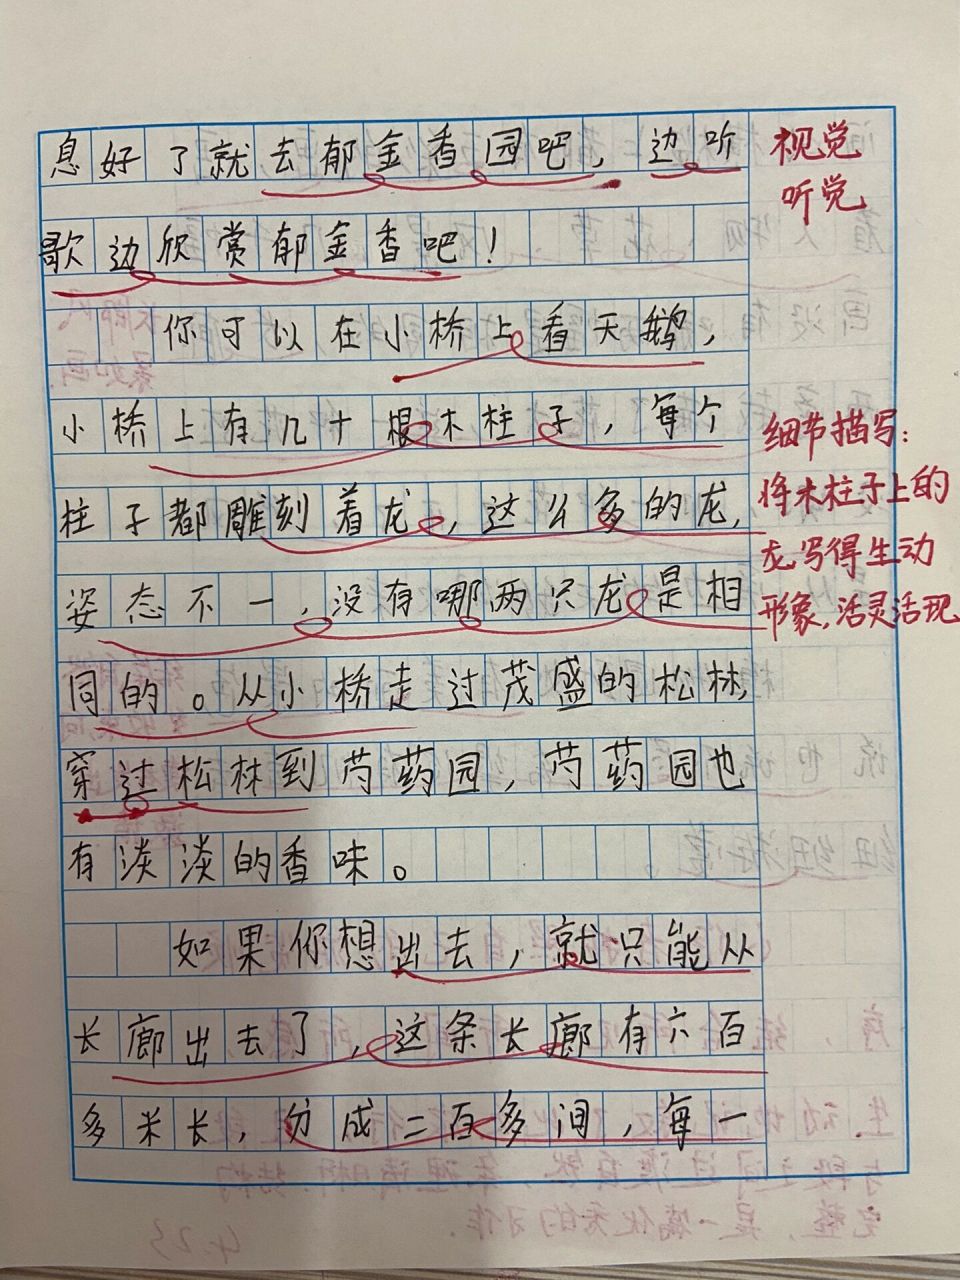 息好了就去郁金香园吧，边听
歌边欣赏郁金香吧！
你可以在小桥上看天鹅，
小桥上有几十根木柱子，每个
柱子都雕刻着龙，这么多的龙，
姿态不一，没有哪两只龙是相
同的。从小桥走过茂盛的松林，
穿过松林到芍药园，芍药园也
有淡淡的香味。
如果你想出去，就只能从
长廊出去了，这条长廊有六百
多米长，分成二百多间，每一
视觉
听觉
细节描写：
将木柱子上的
龙写得生动
形象，活灵活现